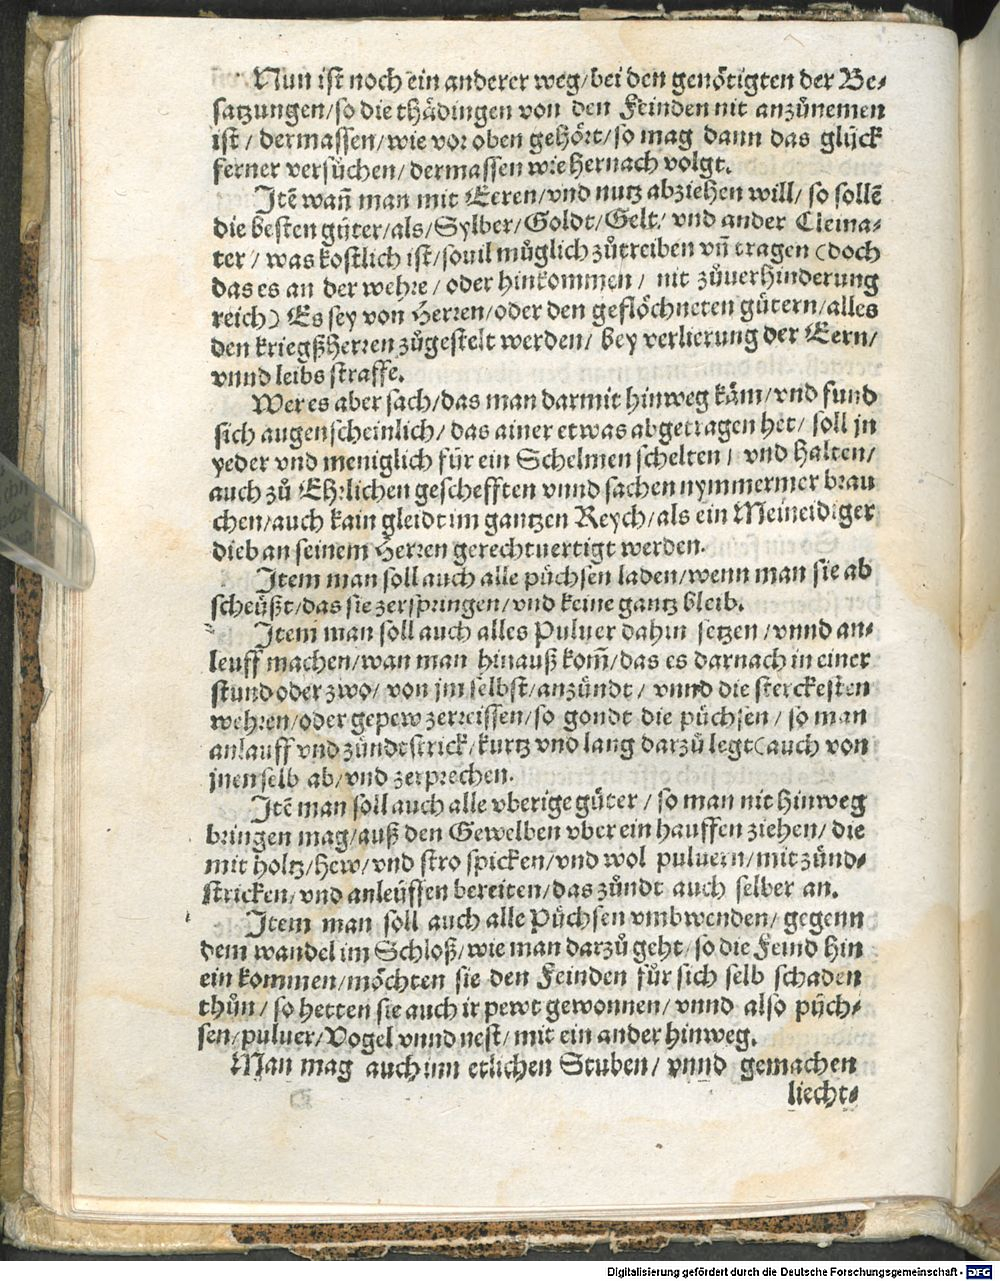 Nun ist noch ein anderer weg/bei den genötigten der Be⸗
satzungen/so die thädingen von den Feinden nit anzůnemen
ist/ dermassen/wie vor oben gehört/so mag dann das glück
ferner versůchen/dermassen wie hernach volgt.
Jtē wañ man mit Eeren/vnd nutz abziehen will/ so sollē
die besten güter/als/Sylber/Goldt/Gelt/ vnd ander Cleina⸗
ter/ was kostlich ist/souil můglich zůtreiben vñ tragen (doch
das es an der wehre/oder hinkommen/ nit zůuerhinderung
reich) Es sey von Herren/oder den geflöchneten gütern/alles
den kriegßherren zůgestelt werden/ bey verlierung der Eern/
vnnd leibs straffe.
Wer es aber sach/das man darmit hinweg käm/vnd fund
sich augenscheinlich/das ainer etwas abgetragen het/ soll jn
yeder vnd meniglich für ein Schelmen schelten/ vnd halten/
auch zů Ehrlichen geschefften vnnd sachen nymmermer brau
chen/auch kain gleidt im gantzen Reych/als ein Meineidiger
dieb an seinem Herren gerechtuertigt werden.
Jtem man soll auch alle püchsen laden/wenn man sie ab
scheüßt/das sie zerspringen/vnd keine gantz bleib.
Jtem man soll auch alles Puluer dahin setzen/vnnd an⸗
leuff machen/wan man hinauß kom̃/das es darnach in einer
stund oder zwo/ von jm selbst/anzündt/ vnnd die sterckesten
wehren/oder gepew zerreissen/so gondt die püchsen/ so man
anlauff vnd zündtstrick/kurtz vnd lang darzů legt(auch von
jnen selb ab/vnd zerprechen.
Jtē man soll auch alle vberige güter/ so man nit hinweg
bringen mag/auß den Gewelben vber ein hauffen ziehen/ die
mit holtz/hew/vnd stro spicken/vnd wol puluern/mit zünd⸗
stricken/vnd anleüffen bereiten/das zündt auch selber an.
Jtem man soll auch alle Püchsen vmbwenden/ gegenn
dem wandel im Schloß/wie man darzů geht/so die Feind hin
ein kommen/möchten sie den Feinden für sich selb schaden
thůn/ so hetten sie auch ir pewt gewonnen/ vnnd also püch⸗
sen/puluer/Vogel vnnd nest/ mit ein ander hinweg.
Man mag auch inn etlichen Stuben/ vnnd gemachen
liecht⸗
Digitalisierung gefördert durch die Deutsche Forschungsgemeinschaft - DFG